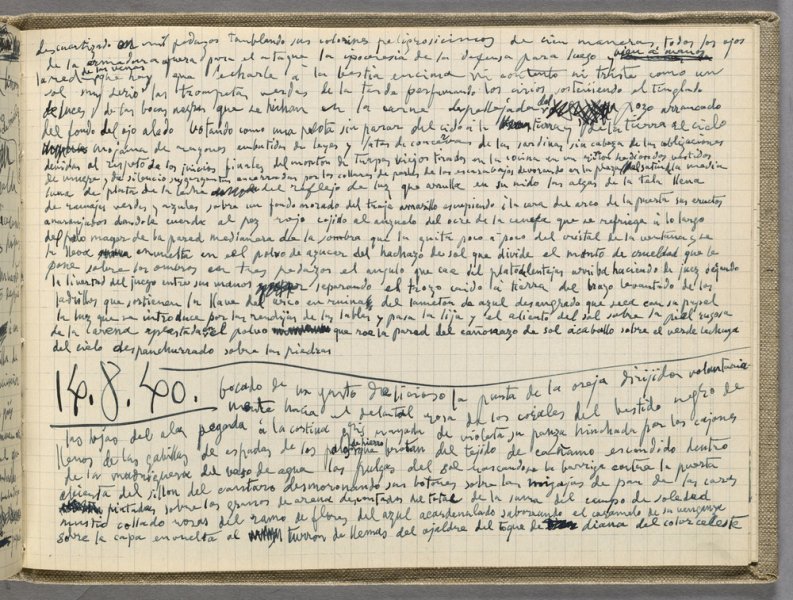 descuartizado en mil pedazos temblando sus colorines peligrosicimos de cien maneras todos los ojos
de la armadura para el ataque la ipocresia de su defensa para luego y
la red que hay que hecharle a la bestia encima ni contento ni triste como un
sol muy serio las trompetas verdas de la tarde perfumando los cirios sosteniendo el tinglado
de luces y de las bocas negras que se hinchan en la arena despellejada del pozo arrancado
del fondo del ojo alado botando como una pelota sin parar del cielo á la tierra y de la tierra al cielo
de razones embutidas de leyes y latas de conservas de las sardinas sin cabeza de las obligaciones
devidas al respeto de los juicios finales del monton de trapos viejos tirados en la cocina en un rincon hediondos vestidos
de vinagre y de silencio encerradas por los collares de perlas de los escarabajos devorando en la plaza la media
luna de plata de la del reflejo de luz que arrulla en su nido las algas de la tela llena
de ramajes verdes y azules sobre un fondo morado del traje amarillo escupiendo á la cara del arco de la puerta sus eructos
anaranjados dandole cuerda al pez rojo cojido al anzuelo del ocre de la que se refriega á lo largo
del palo mayor de la pared medianera de la sombra que la quita poco á poco del cristal de la ventana y se
la lleva envuelta en el polvo de azucar del hachazo de sol que divide el monte de crueldad que le
pone sobre los ombros en tres pedazos el angulo que cae del plato de lentejas arriba haciendo de juez dejando
la libertad del juego entre sus manos separando el trozo unido á la tierra del brazo levantado de los
ladrillos que sostienen la llave del arco en ruinas del lameton de azul desangrado que seca con su papel
la luz que se introduce por las rendijas de las tablas y pasa la lija y el aliento del sol sobre la piel rugosa
de la arena aplastada el polvo que roe la pared del cañonazo de sol á caballo sobre el verde lechuga
del cielo despanchurrado sobre las piedras
14.8.40. bocado de un gusto delicioso la punta de la oreja dirijida voluntaria
mente hacia el delantal rosa de los corales del bestido negro de
las hojas del ala pegada á la cortina gris rayada de violeta su panza hinchada por los cajones
llenos de las gabillas de espadas de los palos de hierro que brotan del tejido de cañamo escondido dentro
de la madriguera del vaso de agua las pulgas del sol rascandose la barriga contra la puerta
abierta del sillon del canario desmoronando sus botones sobre las migajas de pan de las caras
pintadas sobre los granos de arena descontados del total de la suma del cuerpo de soledad
mustio collado rosas del ramo de flores del azul acardenalado saboreando el caramelo de su venganza
sobre la capa envuelta al turron de llemas del ojaldre del toque de diana del color celeste